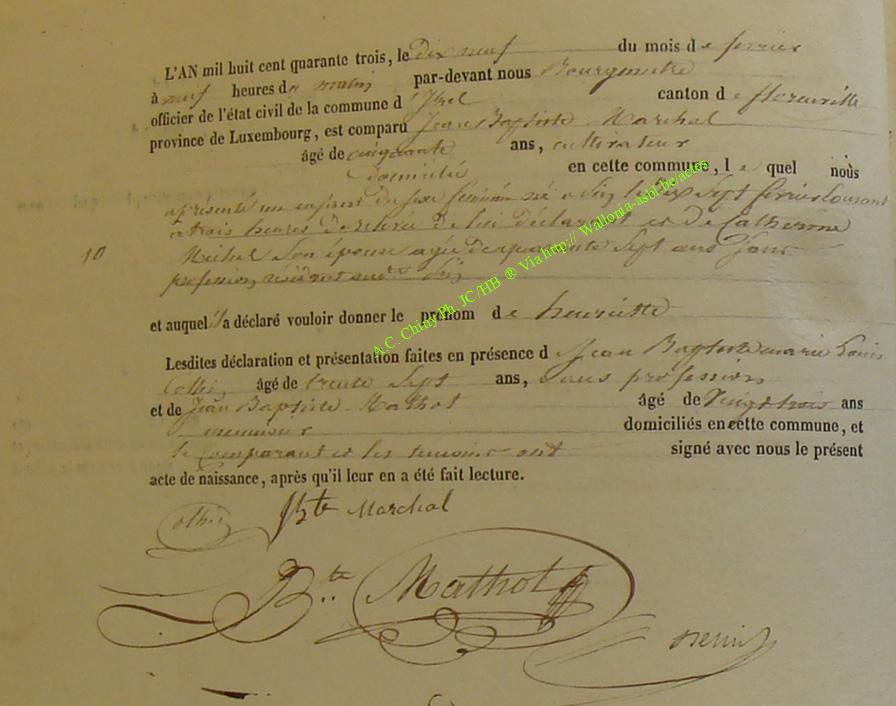 L'AN mil huit cent quarante trois, le dix neuf du mois de fevrier
à neuf heures du matin par-devant nous Bourgmestre
officier de l'état civil de la commune d'Izel canton de florenville
province de Luxembourg, est comparu Jean Baptiste Marchal
âgé de cinquante ans, cultivateur
domicilié en cette commune, le quel nous
a présenté un enfant du sexe feminin né a le dix Sept fevrier Courant
a trois heures de relevée de lui déclarant et de Catherine
10
Michel Son épouse agée de quarante Sept ans Sans
profession, résidant aud.
et auquel il a déclaré vouloir donner le prénom de henriette
Lesdites déclaration et présentation faites en présence de Jean Baptiste marie Louis
âgé de trente Sept ans, Sans profession
et de Jean Baptiste Mathot âgé de Vingt trois ans
menuisier domiciliés en cette commune, et
le comparant et les temoins ont signé avec nous le présent
acte de naissance, après qu'il leur en a été fait lecture.
Jbte Marchal
Bte Mathot
A.C. Chiny Ph. JC/HB ® Via http:// Wallonia-asbl.be/actes